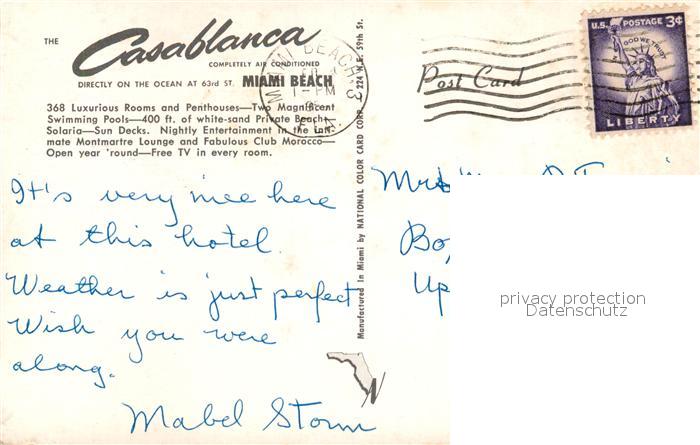 THE Casablanca
COMPLETELY AIR CONDITIONED
DIRECTLY ON THE OCEAN AT 63rd ST. MIAMI BEACH
368 Luxurious Rooms and Penthouses—Two Magnificent
Swimming Pools—400 ft. of white-sand Private Beach—
Solaria—Sun Decks. Nightly Entertainment in the Inti-
mate Montmartre Lounge and Fabulous Club Morocco—
Open year 'round—Free TV in every room.
It's very nice here
at this hotel.
Weather is just perfect
Wish you were
along.
Mabel Storm
Manufactured in Miami by NATIONAL COLOR CARD CORP. 224 N.E. 59th St.
MIAMI BEACH
PM
Post Card
U.S. POSTAGE 3¢
IN GOD WE TRUST
LIBERTY
Mrs
Bo
Up
privacy protection
Datenschutz